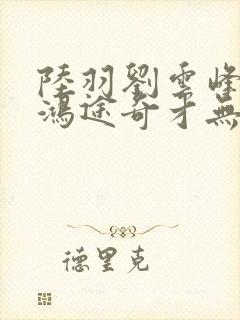 陸羽劉雲峰
鴻途奇才無
德里克